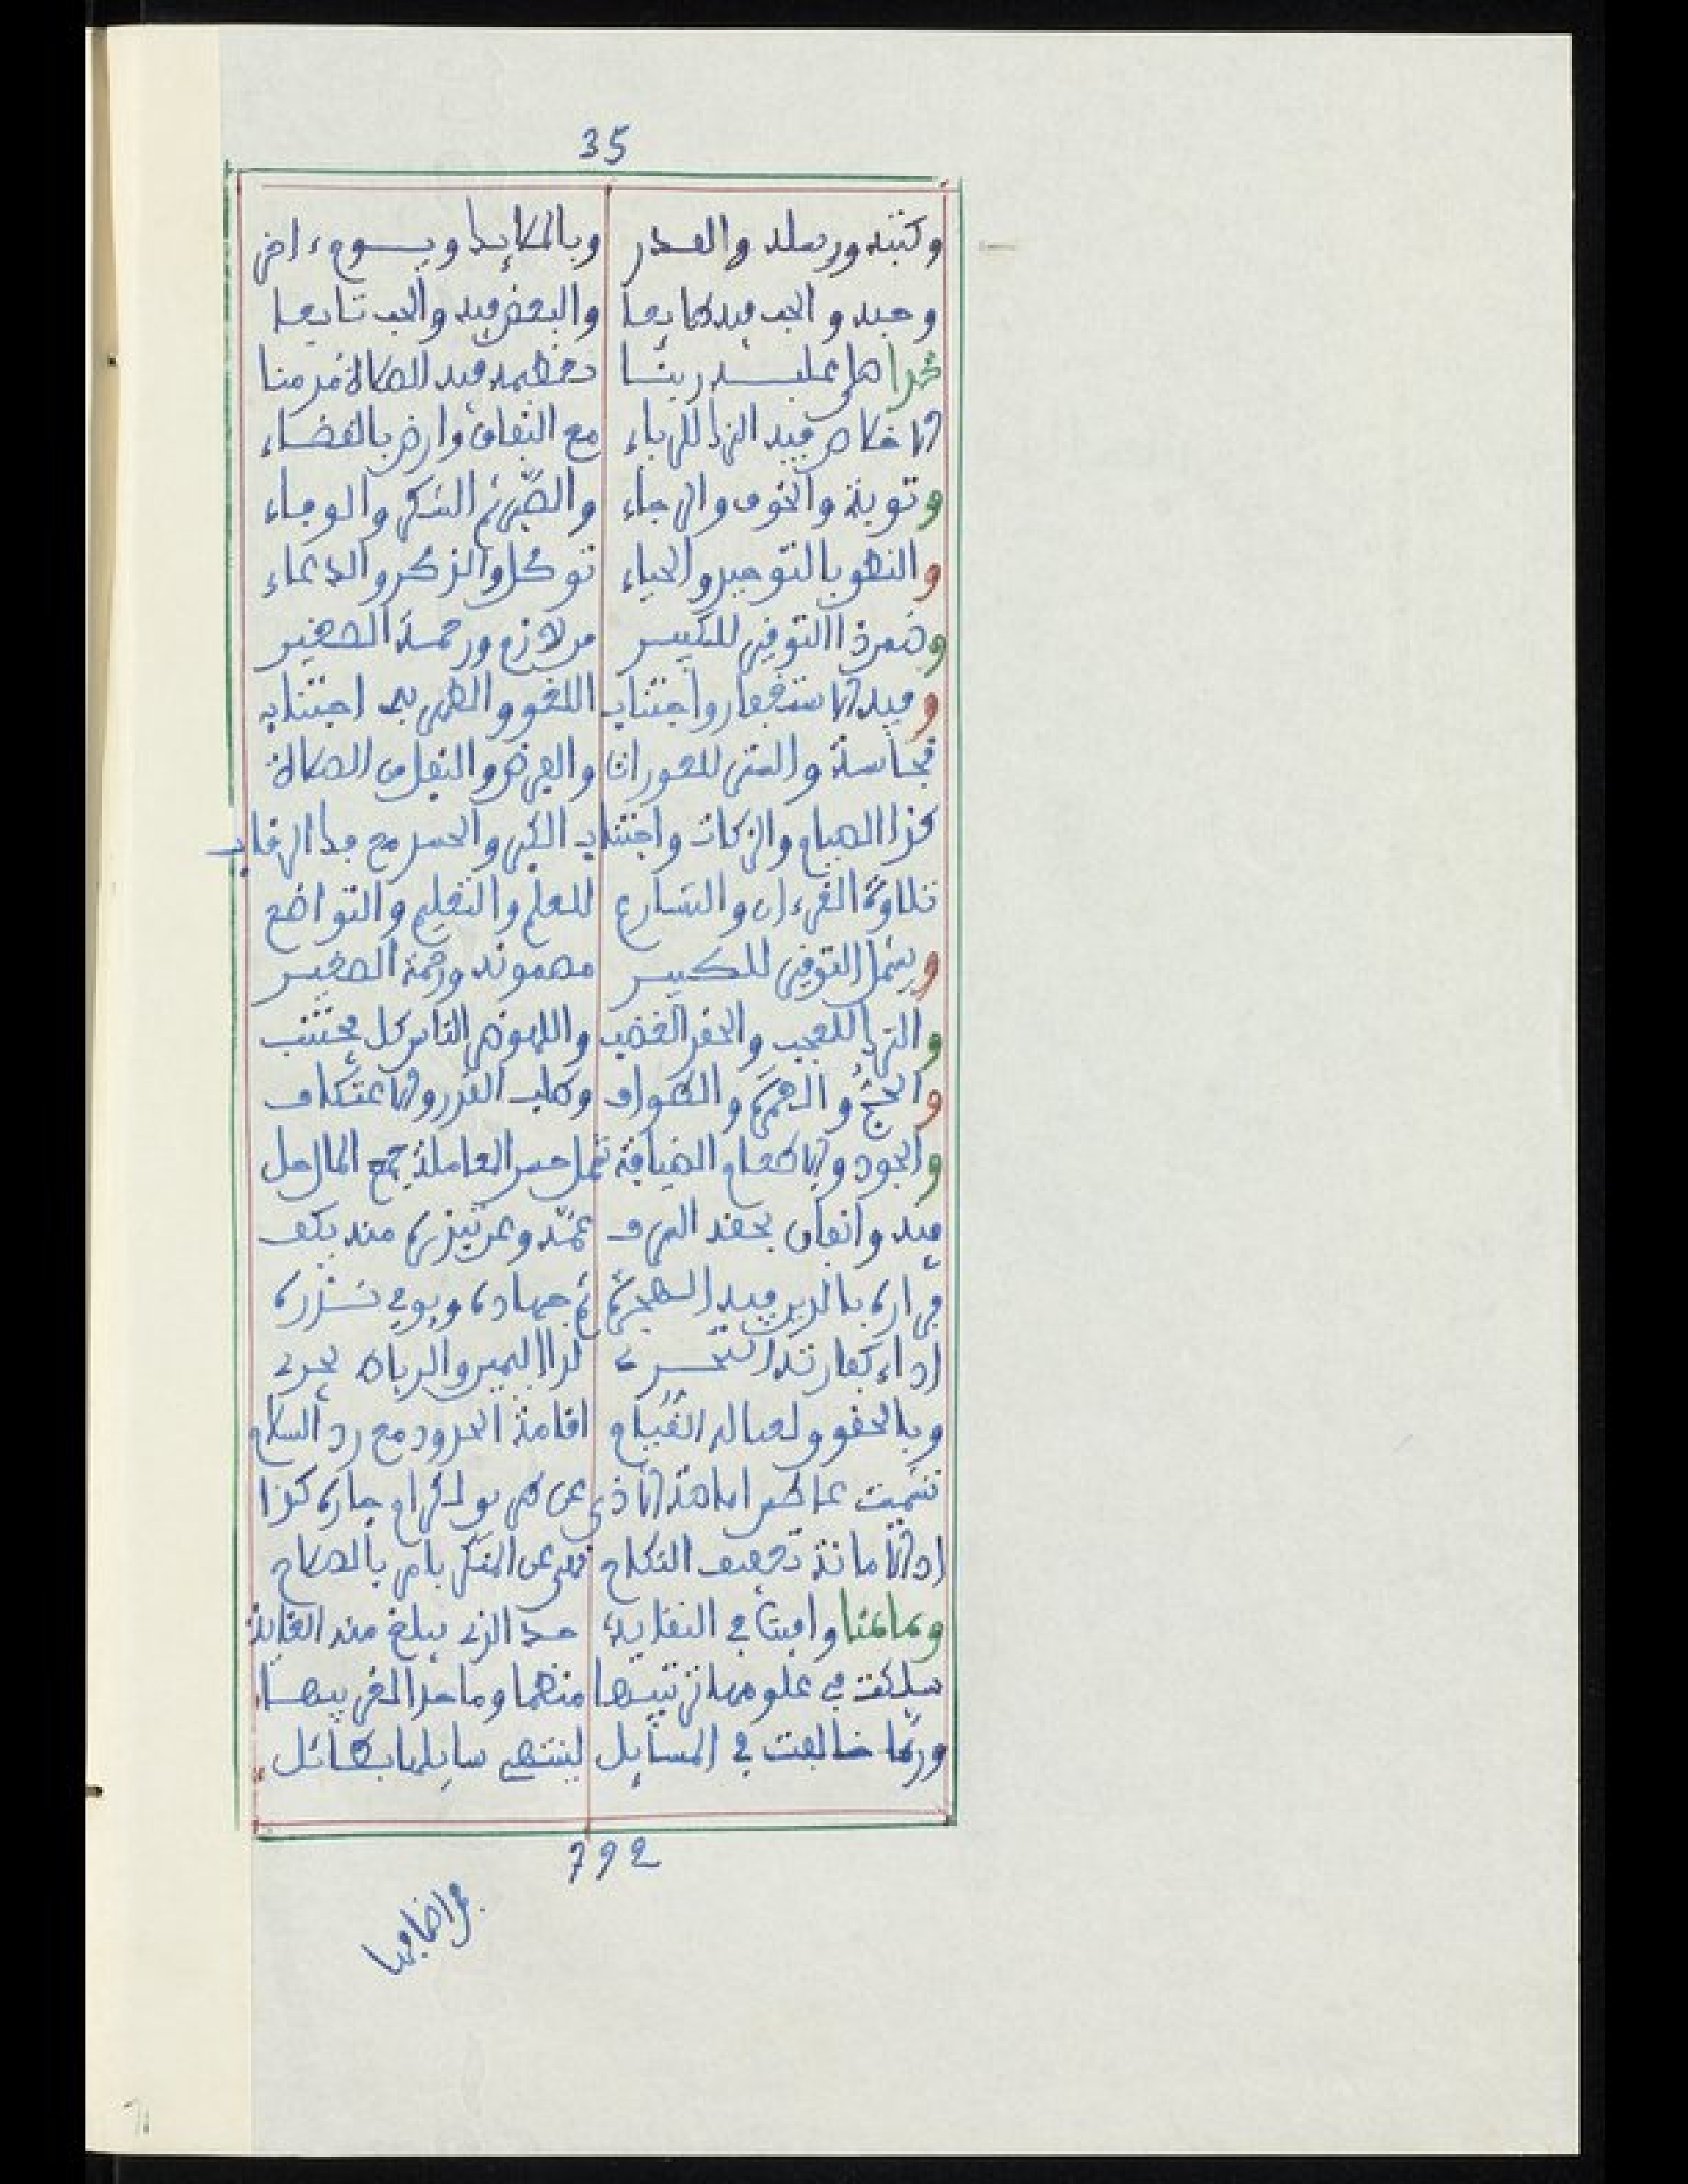 35
وكتبه ورسله والقدر وبالملائك ويوم ءاخر
وحبه والحب فيه طايعا والبغض فيه والحب تابعا
محمدا صلى عليه ربنا تعظيمه فيه الصلاة
الاخلاص فيه الترك للرياء مع النفاق وارض بالقضاء
وتوبة والخوف والرجاء والصبر ثم الشكر والوفاء
والنطق بالتوحيد والحياء توكل والذكر والدعاء
وضمن ذا التوقير للكبير ورحمة الصغير
وفيه الاستغفار واجتناب اللغو والطهر به اجتناب
نجاسة والستر للعورات والفرض والنفل من الصلاة
كذا الصيام والزكات واجتناب الكبر والحسد مع فك الرقاب
تلاوة القرءان والتسارع للعلم والتعليم والتواضع
ويشمل التوقير للكبير مضمونه ورحمة الصغير
والترك للعجب والحقد الغضب واللهو ضر الناس كل يجتنب
والحج والعمرة والطواف وطلب القدر والاعتكاف
والجود والاطعام الضيافة حسن المعاملة جمع المال حل
فيه وانفاق بحقه السرف عنه وعن تبذيره منه يكف
فراره بالدين فيه الهجرة ثم جهاده ويوفي نذره
اداء كفارته التحري لذا اليمين والرباط يجري
وبالحقوق لعياله القيام اقامة الحدود مع رد السلام
تشميت عاطس اماطة الاذى عن طريق واكرام جاره كذا
اد الامانة تعفف النكاح نهي عن المنكر بامر بالصلاح
وهاهنا وافيت في النقاية حد الذي يبلغ منه الغاية
سلكت في علومها ترتيبها منظما وما عدا الغريبها
وربما خالفت في المسايل لينتهي سايلها بطائل
792